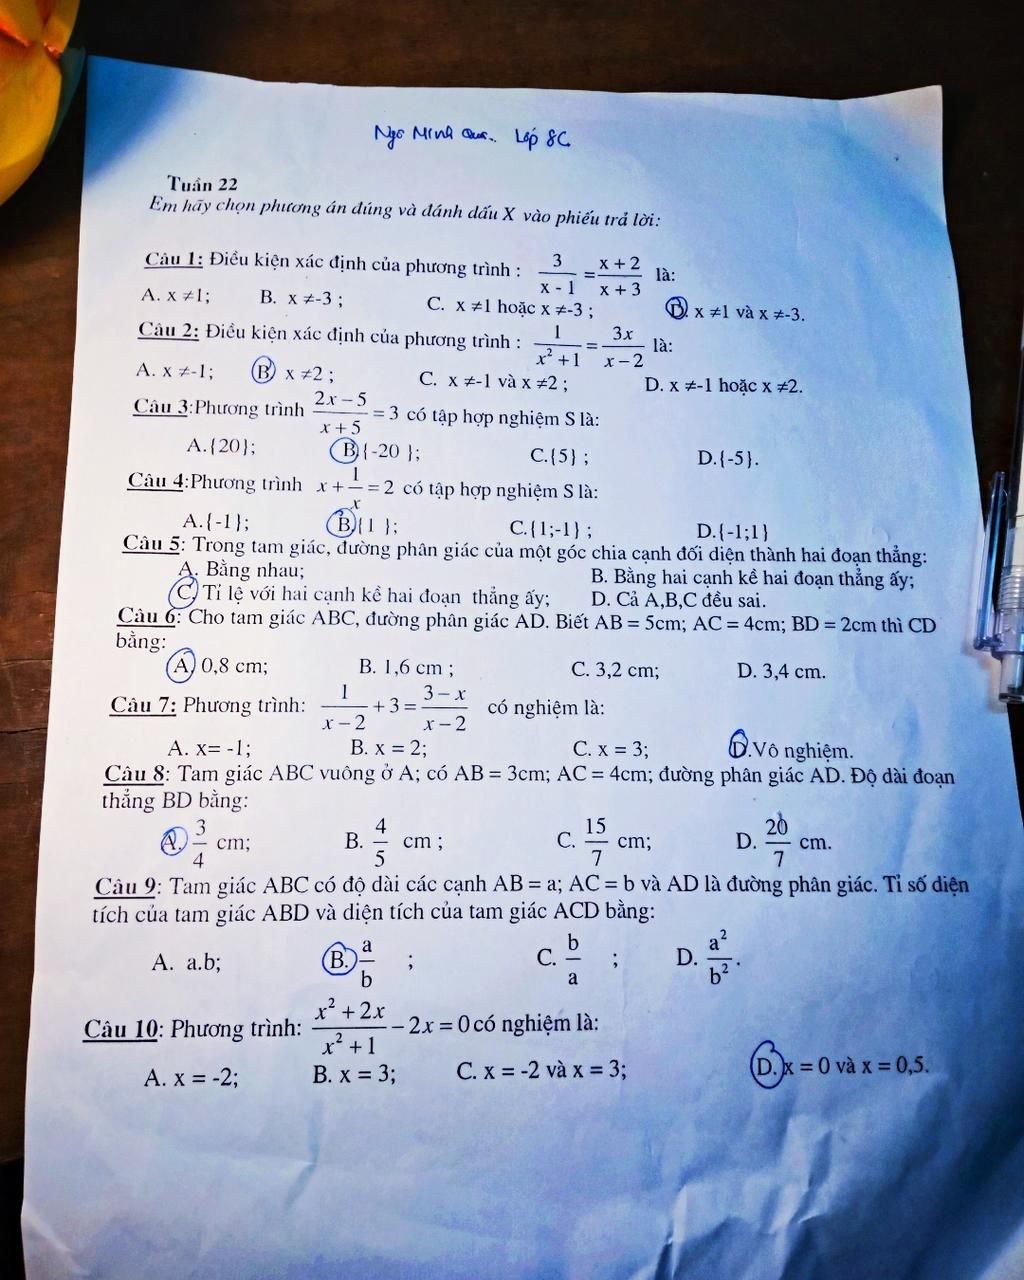 Ngô Minh Lớp 8C
Tuần 22
Em hãy chọn phương án đúng và đánh dấu X vào phiếu trả lời:
Câu 1: Điều kiện xác định của phương trình : 3/(x - 1) = (x + 2)/(x + 3) là:
A. x ≠1; B. x ≠-3 ; C. x ≠1 hoặc x ≠-3 ; D. x ≠1 và x ≠-3.
Câu 2: Điều kiện xác định của phương trình : 1/(x² + 1) = 3x/(x − 2) là:
A. x ≠-1; B x ≠2 ; C. x ≠-1 và x ≠2 ; D. x ≠-1 hoặc x ≠2.
Câu 3:Phương trình (2x − 5)/(x + 5) = 3 có tập hợp nghiệm S là:
A.{20}; B.{-20 }; C.{5} ; D.{-5}.
Câu 4:Phương trình x + 1/x = 2 có tập hợp nghiệm S là:
A.{-1}; B.{1 }; C.{1;-1} ; D.{-1;1}
Câu 5: Trong tam giác, đường phân giác của một góc chia cạnh đối diện thành hai đoạn thẳng:
A. Bằng nhau; B. Bằng hai cạnh kề hai đoạn thẳng ấy;
C. Tỉ lệ với hai cạnh kề hai đoạn thẳng ấy; D. Cả A,B,C đều sai.
Câu 6: Cho tam giác ABC, đường phân giác AD. Biết AB = 5cm; AC = 4cm; BD = 2cm thì CD
bằng:
A. 0,8 cm; B. 1,6 cm ; C. 3,2 cm; D. 3,4 cm.
Câu 7: Phương trình: 1/(x − 2) + 3 = (3 − x)/(x − 2) có nghiệm là:
A. x= -1; B. x = 2; C. x = 3; D.Vô nghiệm.
Câu 8: Tam giác ABC vuông ở A; có AB = 3cm; AC = 4cm; đường phân giác AD. Độ dài đoạn
thẳng BD bằng:
A. 3/4 cm; B. 4/5 cm ; C. 15/7 cm; D. 20/7 cm.
Câu 9: Tam giác ABC có độ dài các cạnh AB = a; AC = b và AD là đường phân giác. Tỉ số diện
tích của tam giác ABD và diện tích của tam giác ACD bằng:
A. a.b; B. a/b ; C. b/a ; D. a²/b².
Câu 10: Phương trình: (x² + 2x)/(x² + 1) − 2x = 0 có nghiệm là:
A. x = -2; B. x = 3; C. x = -2 và x = 3; D. x = 0 và x = 0,5.